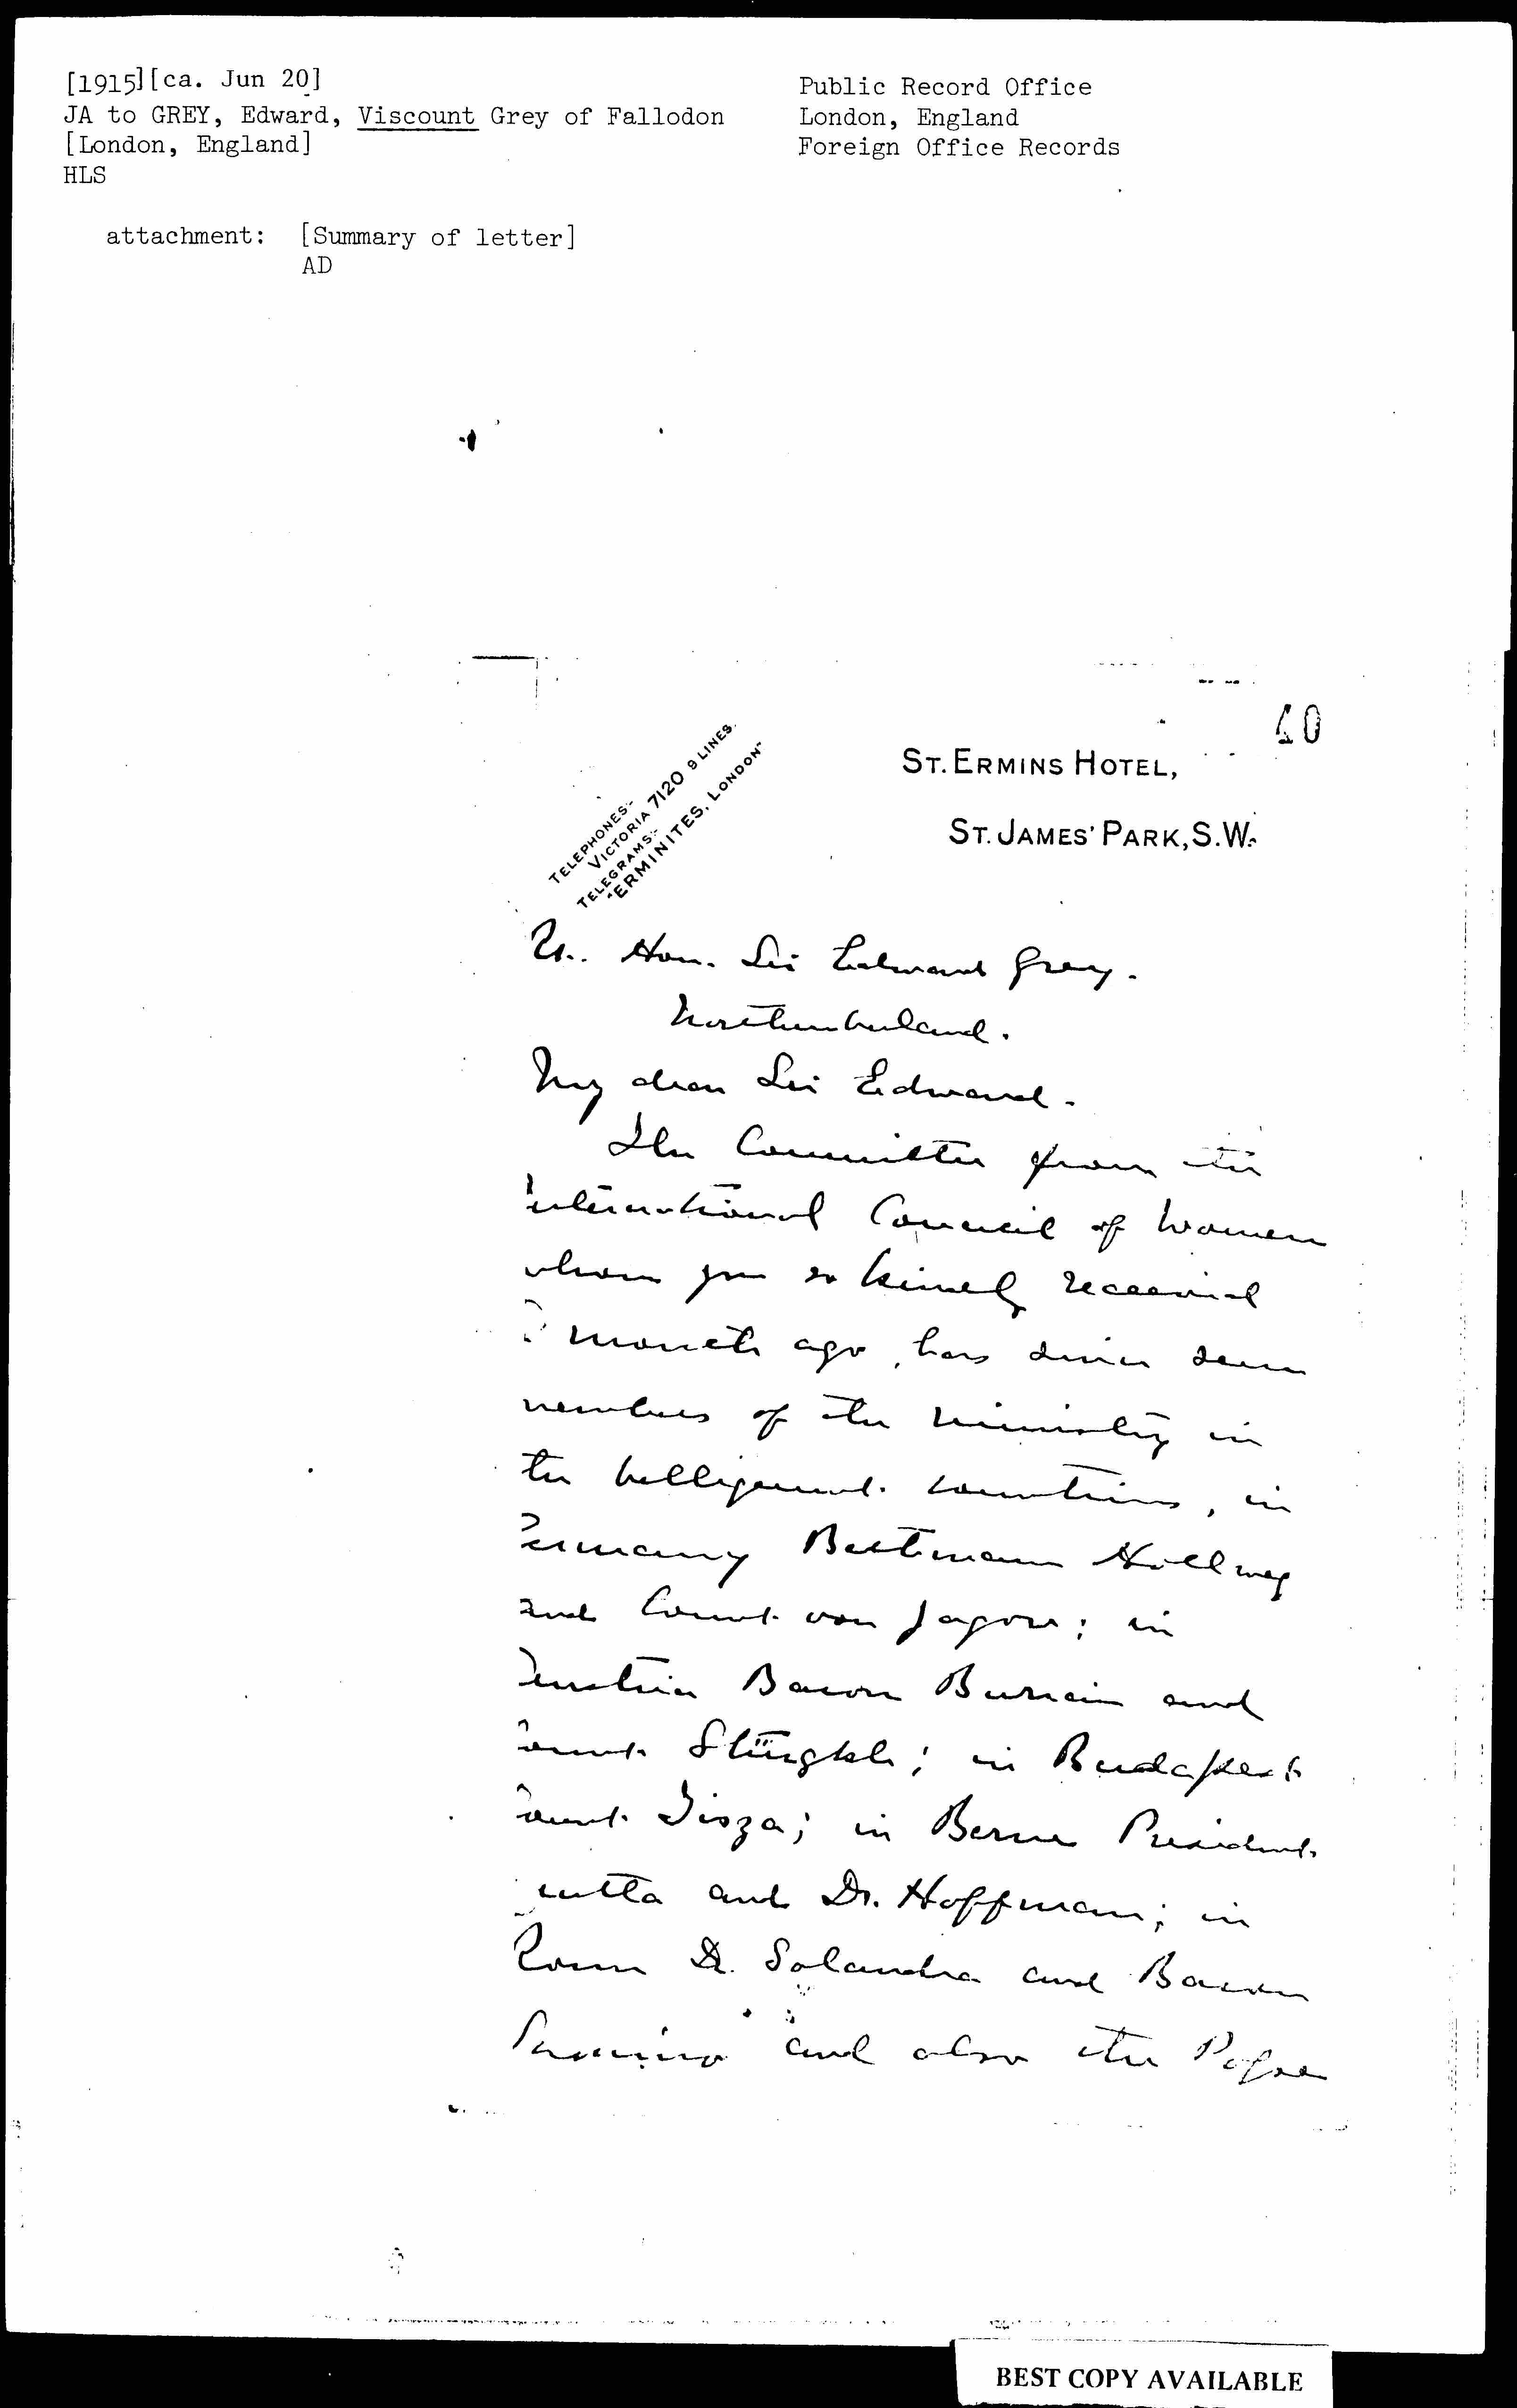 [1915][ca. Jun 20]
JA to GREY, Edward, Viscount Grey of Fallodon
[London, England]
HLS
attachment: [Summary of letter]
AD
Public Record Office
London, England
Foreign Office Records
40
TELEPHONES:-
VICTORIA 7120 9 LINES.
TELEGRAMS:-
"ERMINITES, LONDON"
ST. ERMINS HOTEL,
ST. JAMES' PARK, S.W.
Rt. Hon. Sir Edward Grey.
Northumberland.
My dear Sir Edward.
The Committee from the
International Council of Women
whom you so kindly received
month ago, has since seen
members of the ministry in
the belligerent countries, in
Germany Bethmann Hollweg
and Count von Jagow; in
Austria Baron Burian and
Count Stürgkh; in Budapest
Count Tisza; in Berne President
Motta and Dr. Hoffman; in
Rome Dr. Salandra and Baron
Sonnino and also the Pope
BEST COPY AVAILABLE